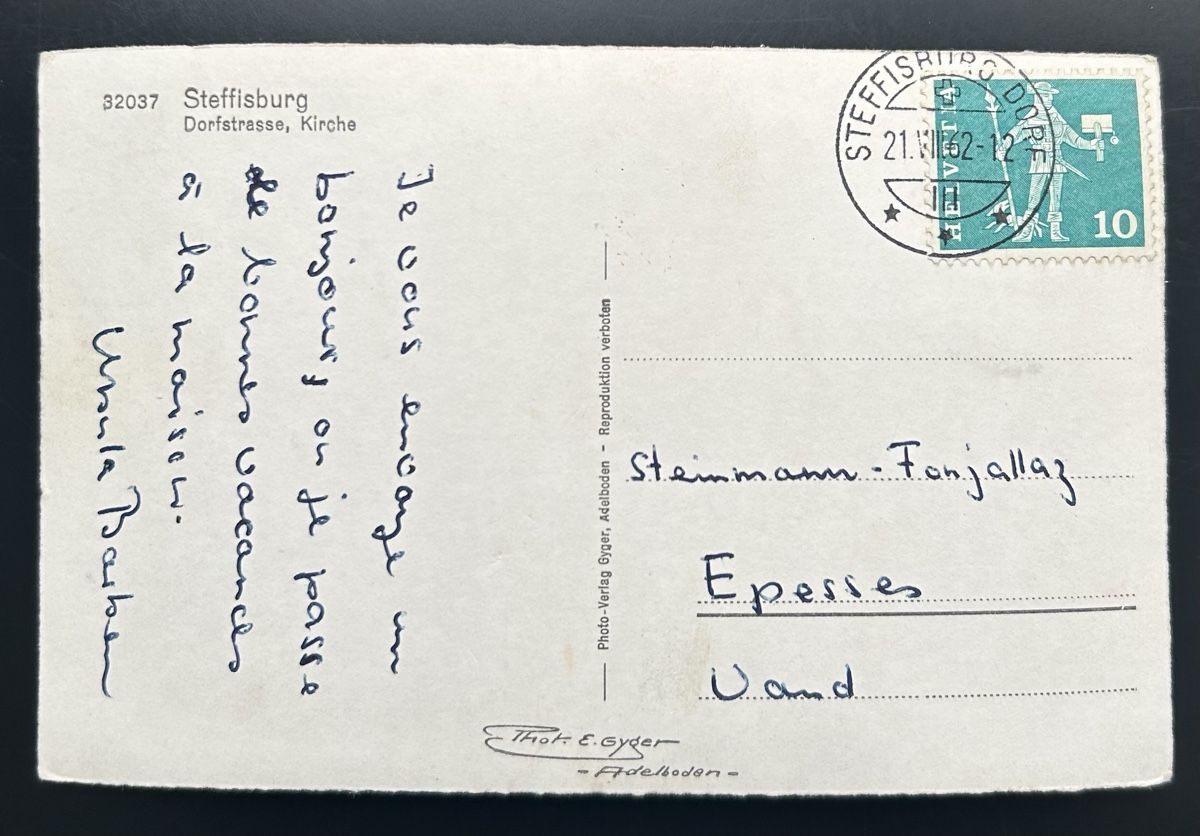 32037 Steffisburg
Dorfstrasse, Kirche
Je vous envoye un
bonjour, ou je passe
de bonnes vacances
à la maison.
Ursula Barben
Photo-Verlag Gyger, Adelboden - Reproduktion verboten
STEFFISBURG DORF
21.VIII.62-12
HELVETIA
10
Steinmann-Fonjallaz
Epesses
Vaud
Phot. E. Gyger
- Adelboden -